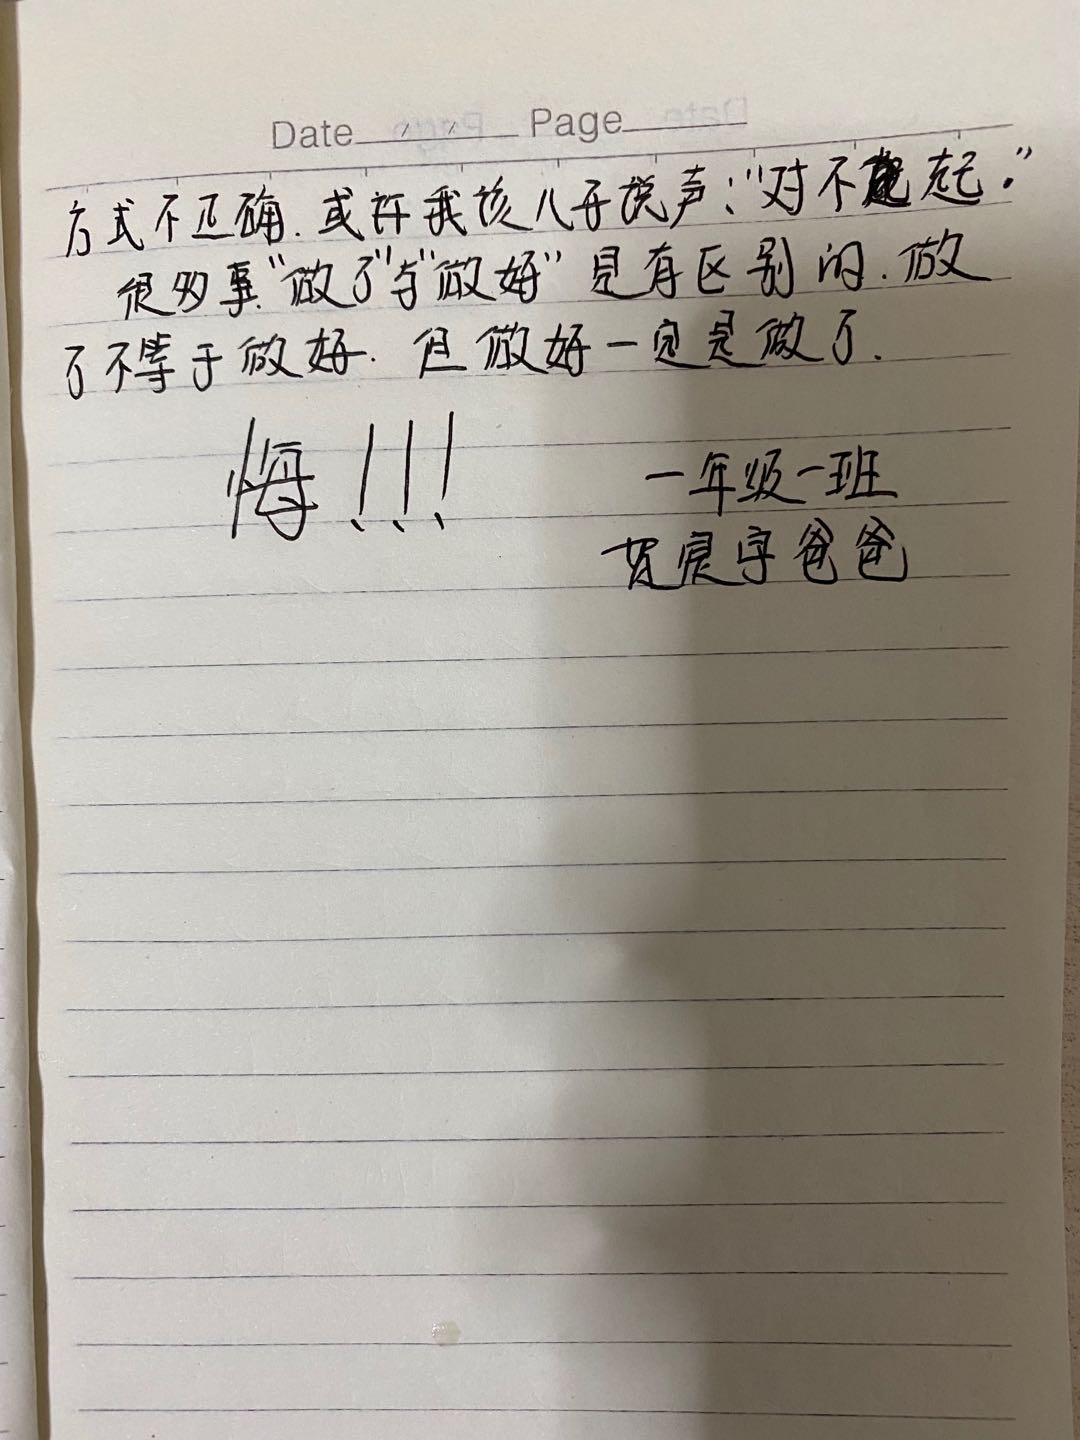 Date / / Page
方式不正确.或许我该儿子说声:"对不起."
很多事"做了"与"做好"是有区别的.做
了不等于做好.但做好一定是做了.
悔!!!
一年级一班
贺宸宇爸爸